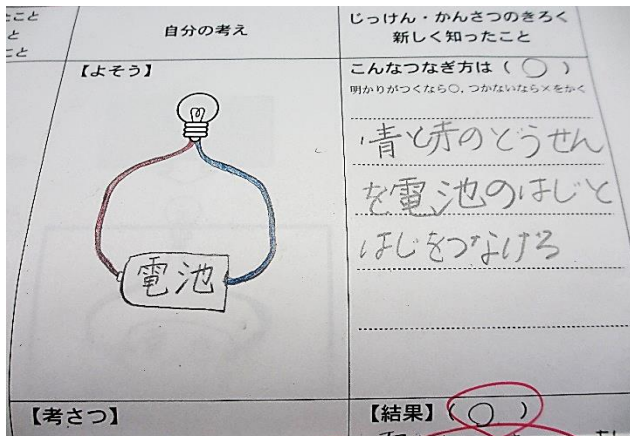 たこと
と
こと
自分の考え
じっけん・かんさつのきろく
新しく知ったこと
【よそう】
電池
こんなつなぎ方は(○)
明かりがつくなら○、つかないなら×をかく
青と赤のどうせん
を電池のはじと
はじをつなげる
【考さつ】
【結果】(○)